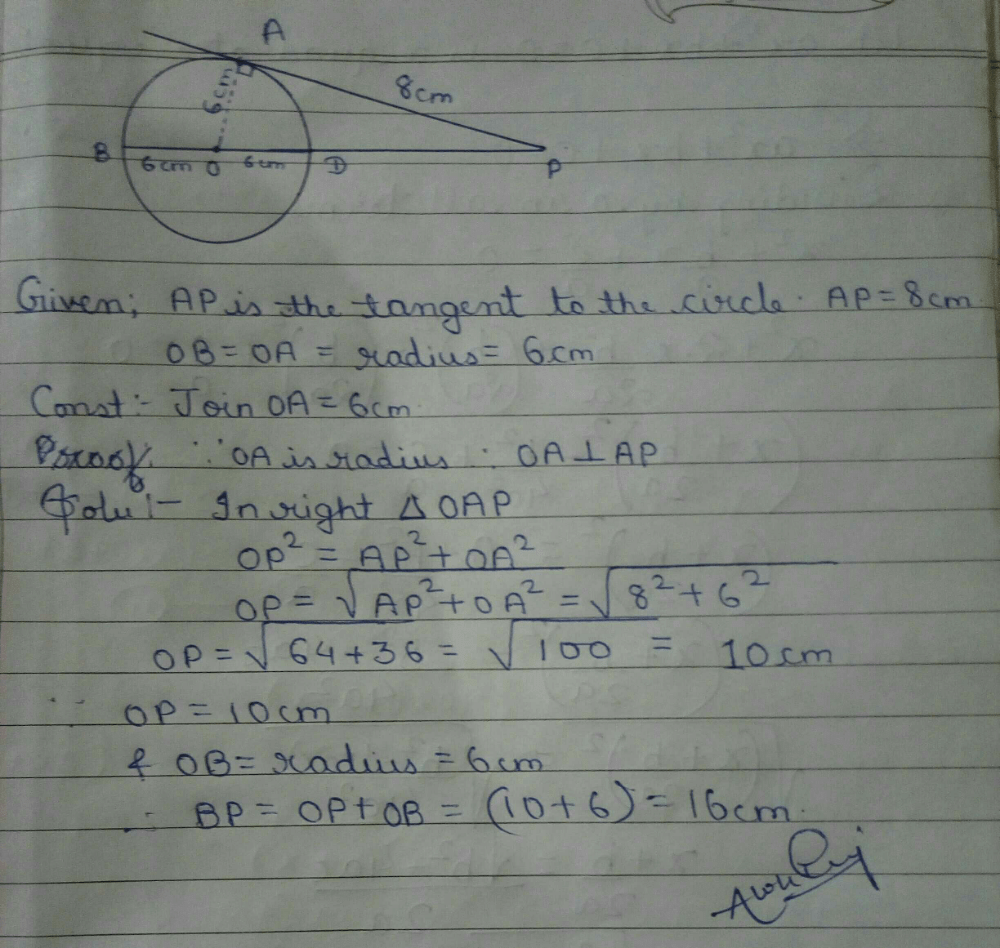 A
6cm
8cm
B 6cm O 6cm D P
Given; AP is the tangent to the circle. AP = 8cm
OB = OA = radius = 6cm
Const:- Join OA = 6cm.
Proof. ∵ OA is radius ∴ OA ⊥ AP
Solu:- In right △ OAP
OP² = AP² + OA²
OP = √AP² + OA² = √8² + 6²
OP = √64+36 = √100 = 10cm
∵ OP = 10cm
& OB = radius = 6cm
∴ BP = OP + OB = (10+6) = 16cm.